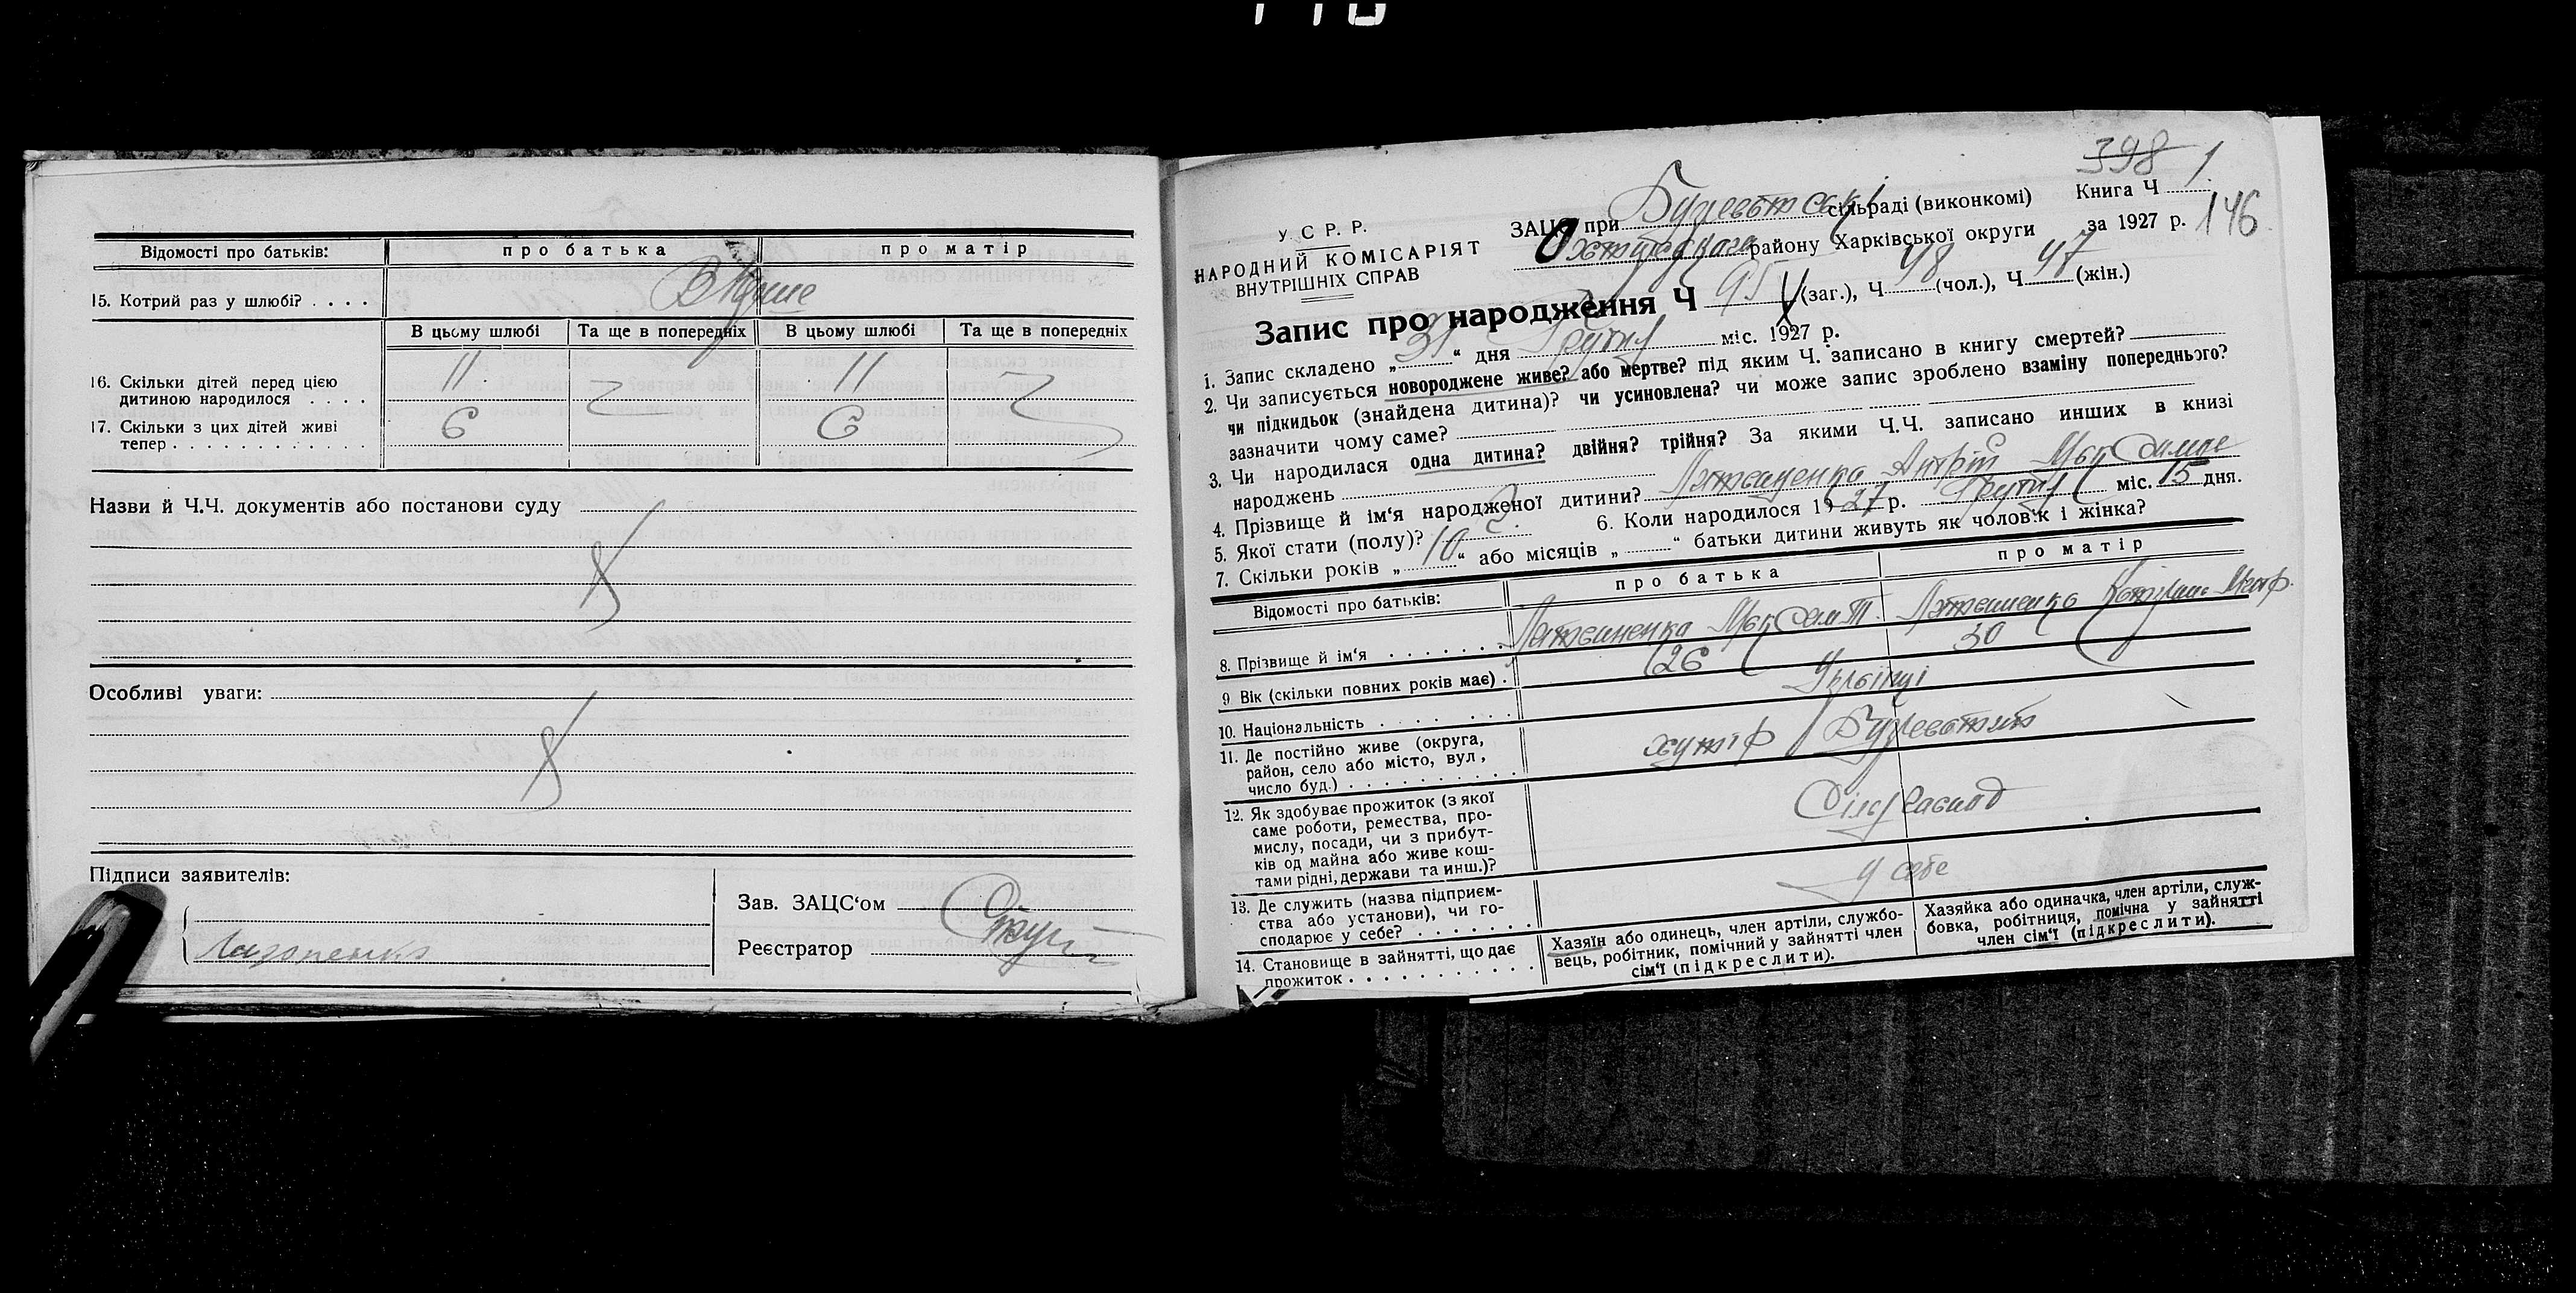 Відомості про батьків: про батька про матір
15. Котрий раз у шлюбі? . . . .
В цьому шлюбі Та ще в попередніх В цьому шлюбі Та ще в попередніх
16. Скільки дітей перед цією дитиною народилося . . . . 11 11
17. Скільки з цих дітей живі тепер . . . . . . . . . . . . 6 6
Назви й Ч.Ч. документів або постанови суду
Особливі уваги:
Підписи заявителів:
Зав. ЗАЦС‘ом
Реєстратор
398
У. С. Р. Р.
НАРОДНИЙ КОМІСАРІЯТ
ВНУТРІШНІХ СПРАВ
ЗАЦС при сільраді (виконкомі) Книга Ч 1
району Харківської округи за 1927 р. 146
Запис про народження Ч 95 (заг.), Ч 48 (чол.), Ч 47 (жін.)
1. Запис складено „ 31 “ дня Грудня міс. 1927 р.
2. Чи записується новороджене живе? або мертве? під яким Ч. записано в книгу смертей?
чи підкидьок (знайдена дитина)? чи усиновлена? чи може запис зроблено взаміну попереднього?
зазначити чому саме?
3. Чи народилася одна дитина? двійня? трійня? За якими Ч.Ч. записано инших в книзі
народжень
4. Прізвище й ім‘я народженої дитини?
5. Якої стати (полу)? Ч 6. Коли народилося 1927 р. Грудня міс. 15 дня.
7. Скільки років „ 10 “ або місяців „ “ батьки дитини живуть як чоловік і жінка?
Відомості про батьків: про батька про матір
8. Прізвище й ім‘я . . . . . . .
9 Вік (скільки повних років має) . 26 30
10. Національність . . . . . . . Українці
11. Де постійно живе (округа, район, село або місто, вул, число буд.) . . . . . . . . . . хутір Буревестник
12. Як здобуває прожиток (з якої саме роботи, ремества, промислу, посади, чи з прибутків од майна або живе коштами рідні, держави та инш.)?
13. Де служить (назва підприємства або установи), чи господарює у себе? . . . . . . . у себе
14. Становище в зайнятті, що дає прожиток . . . . . . . . . . .
Хазяїн або одинець, член артіли, службовець, робітник, помічний у зайнятті член сім‘ї (підкреслити).
Хазяйка або одиначка, член артіли, службовка, робітниця, помічна у зайнятті член сім‘ї (підкреслити).